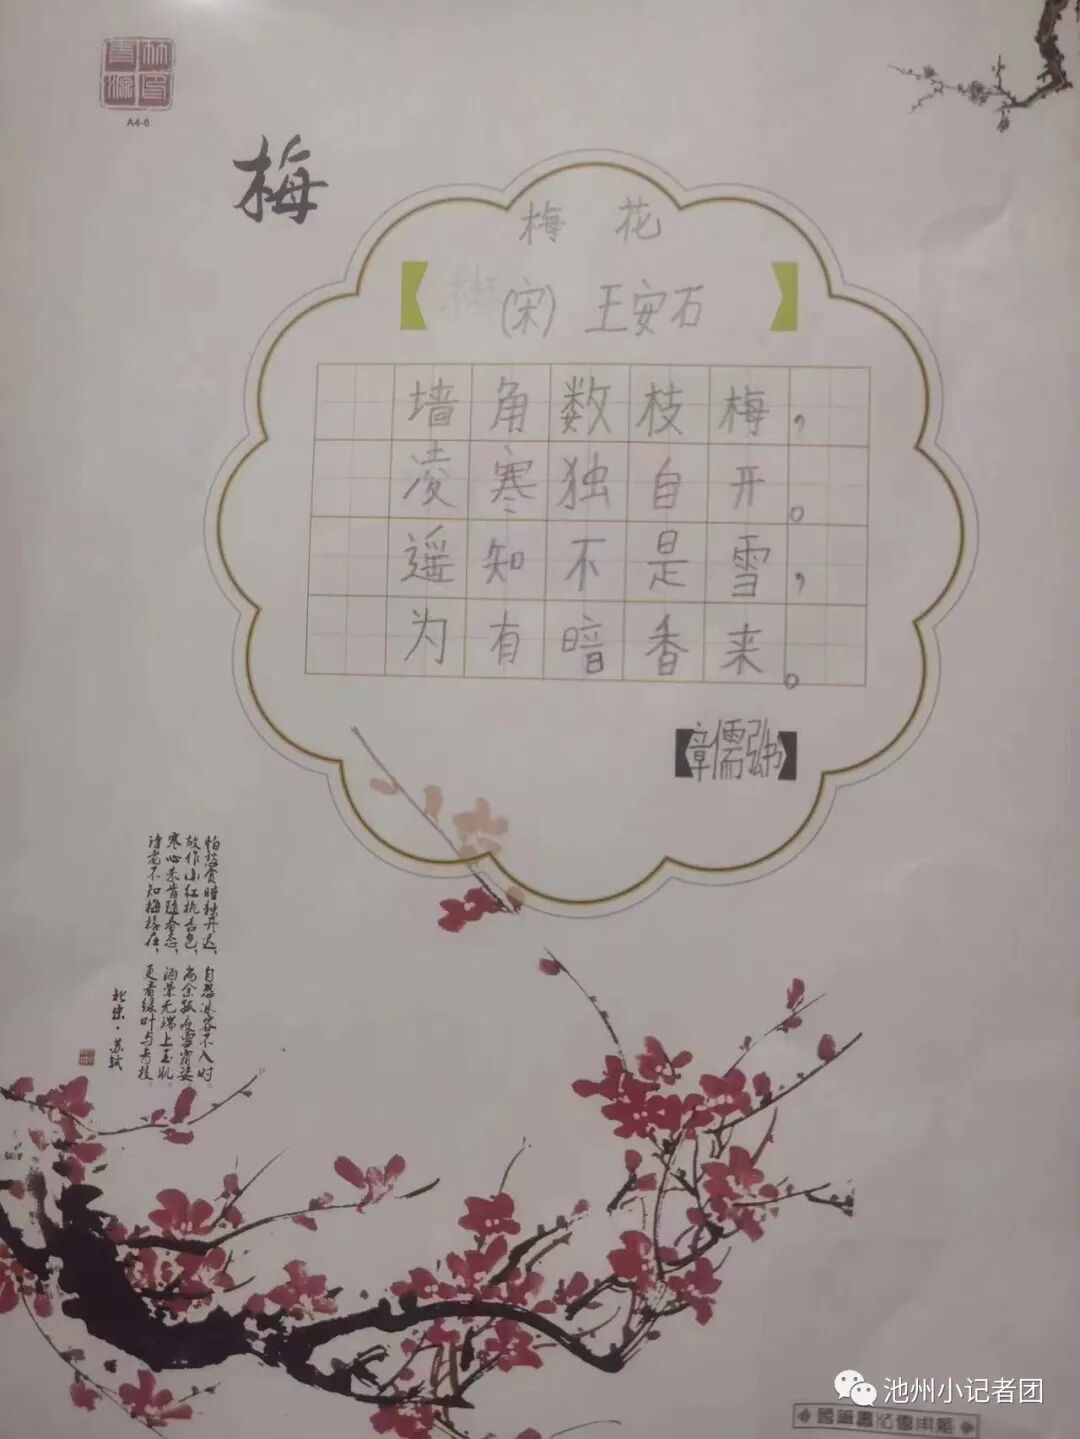 A4-6
梅
梅 花
(宋) 王安石
墙角数枝梅，
凌寒独自开。
遥知不是雪，
为有暗香来。
【章儒弘书】
怕愁贪睡独开迟，自恐冰容不入时。
故作小红桃杏色，尚余孤瘦雪霜姿。
寒心未肯随春态，酒晕无端上玉肌。
诗老不知梅格在，更看绿叶与青枝。
北宋·苏轼
池州小记者团